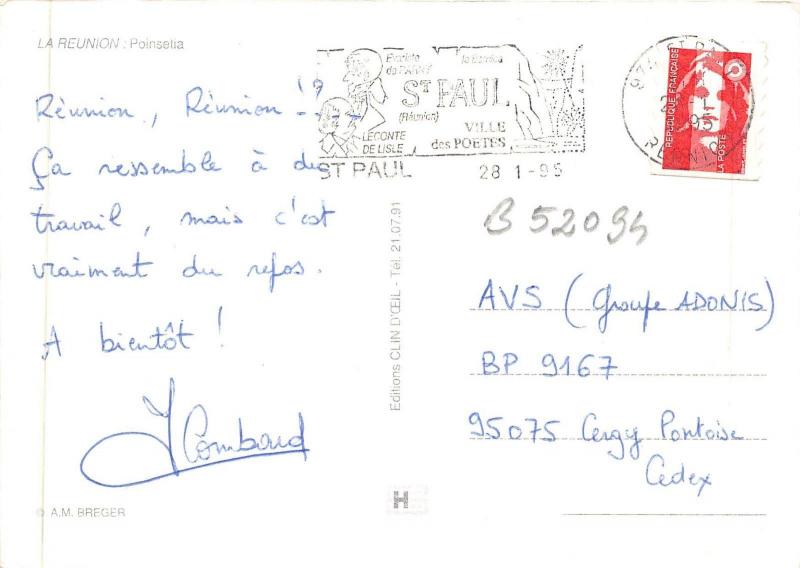 LA REUNION : Poinsetia
Réunion, Réunion !?
Ça ressemble à du
travail, mais c'est
vraiment du repos.
A bientôt !
© A.M. BREGER
Editions CLIN D'ŒIL - Tél. 21.07.91
ST PAUL
(Réunion)
VILLE
des POETES
LECONTE
DE LISLE
ST PAUL
28 1-95
REPUBLIQUE FRANÇAISE
LA POSTE
B 52094
AVS (Groupe ADONIS)
BP 9167
95075 Cergy Pontoise
Cedex
H